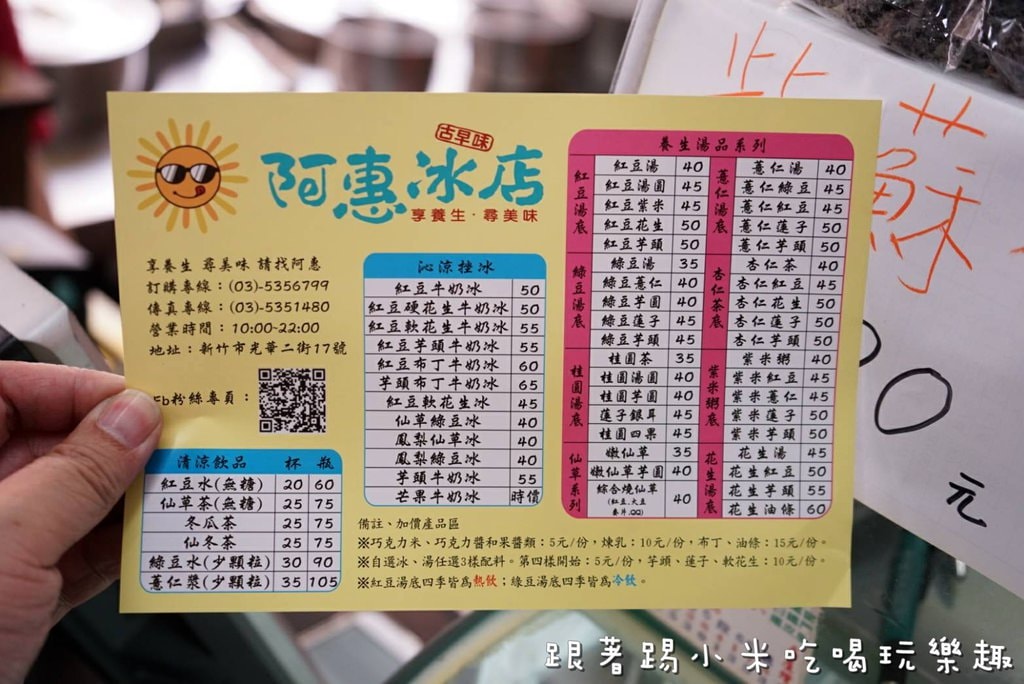 古早味
阿惠冰店
享養生·尋美味
享養生 尋美味 請找阿惠
訂購專線：(03)-5356799
傳真專線：(03)-5351480
營業時間：10:00~22:00
地址：新竹市光華二街17號
Fb粉絲專頁：
清涼飲品 杯 瓶
紅豆水(無糖) 20 60
仙草茶(無糖) 25 75
冬瓜茶 25 75
仙冬茶 25 75
綠豆水(少顆粒) 30 90
薏仁漿(少顆粒) 35 105
沁涼挫冰
紅豆牛奶冰 50
紅豆硬花生牛奶冰 50
紅豆軟花生牛奶冰 55
紅豆芋頭牛奶冰 55
紅豆布丁牛奶冰 60
芋頭布丁牛奶冰 65
紅豆軟花生冰 45
仙草綠豆冰 40
鳳梨仙草冰 40
鳳梨綠豆冰 40
芋頭牛奶冰 55
芒果牛奶冰 時價
養生湯品系列
紅豆湯底
紅豆湯 40
紅豆湯圓 45
紅豆紫米 45
紅豆花生 50
紅豆芋頭 50
綠豆湯底
綠豆湯 35
綠豆薏仁 40
綠豆芋圓 40
綠豆蓮子 45
綠豆芋頭 45
桂圓湯底
桂圓茶 35
桂圓湯圓 40
桂圓芋圓 40
蓮子銀耳 45
桂圓四果 45
仙草系列
嫩仙草 35
嫩仙草芋圓 40
綜合燒仙草 40
(紅豆.大豆
麥片.QQ)
薏仁湯底
薏仁湯 40
薏仁綠豆 45
薏仁紅豆 45
薏仁蓮子 50
薏仁芋頭 50
杏仁茶底
杏仁茶 40
杏仁紅豆 45
杏仁花生 50
杏仁蓮子 50
杏仁芋頭 50
紫米粥底
紫米粥 40
紫米紅豆 45
紫米薏仁 45
紫米蓮子 50
紫米芋頭 50
花生湯底
花生湯 45
花生紅豆 50
花生芋頭 55
花生油條 60
備註、加價產品區
※巧克力米、巧克力醬和果醬類：5元/份，煉乳：10元/份，布丁、油條：15元/份。
※自選冰、湯任選3樣配料。第四樣開始：5元/份，芋頭、蓮子、軟花生：10元/份。
※紅豆湯底四季皆為熱飲；綠豆湯底四季皆為冷飲。
紫蘇
元
跟著踢小米吃喝玩樂趣